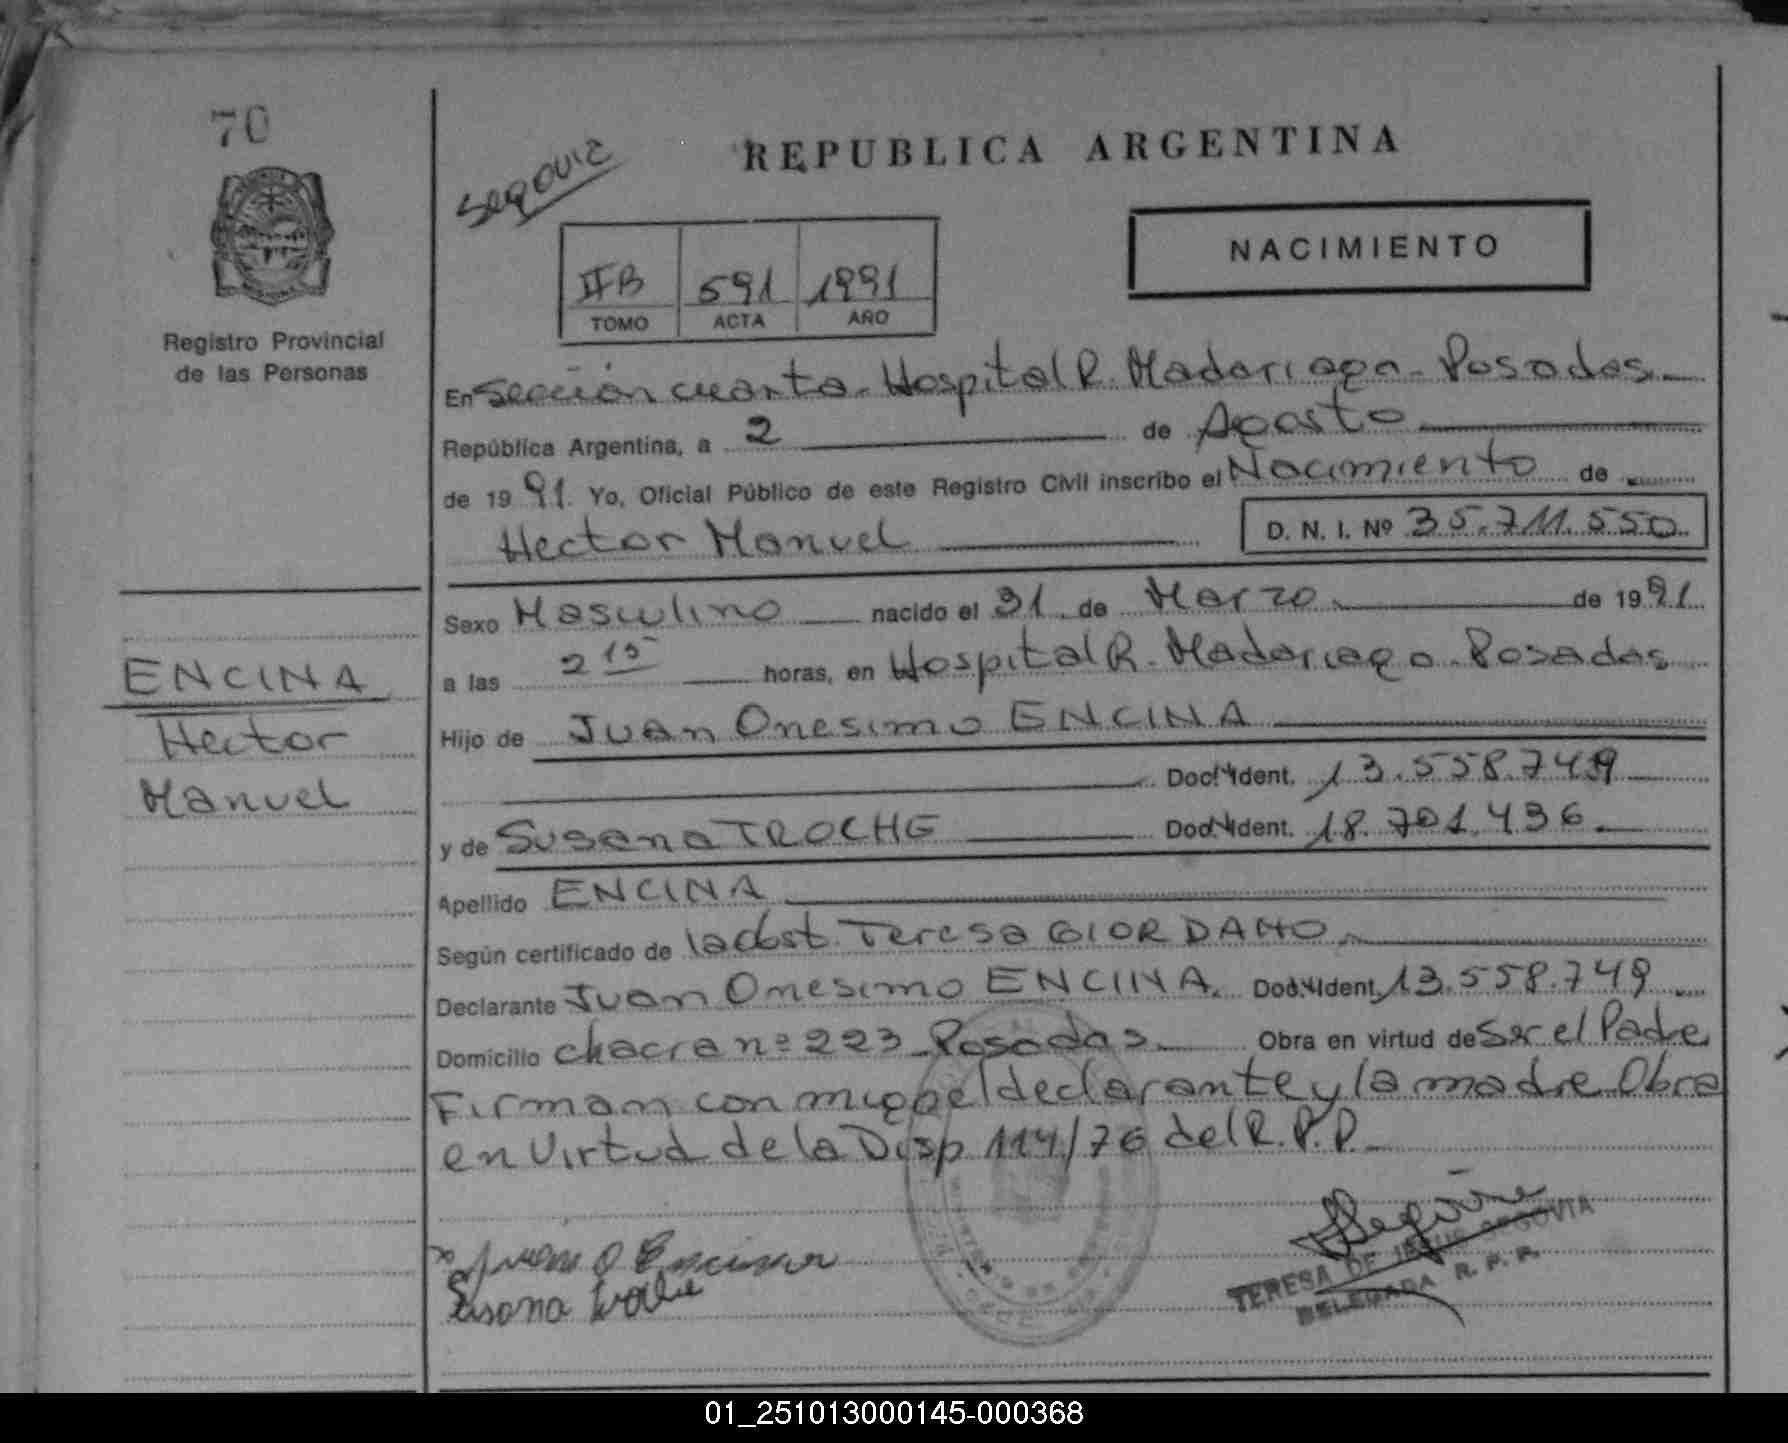 70
Segovia
REPUBLICA ARGENTINA
NACIMIENTO
IIB 591 1991
TOMO ACTA AÑO
Registro Provincial
de las Personas
En Sección cuarta - Hospital R. Madariaga - Posadas
República Argentina, a 2 de Agosto
de 19 91. Yo, Oficial Público de este Registro Civil inscribo el Nacimiento de
Hector Manuel D. N. I. Nº 35.711.550
Sexo Masculino nacido el 31 de Marzo de 19 91
a las 2 15 horas, en Hospital R. Madariaga - Posadas
ENCINA
Hector
Manuel
Hijo de Juan Onesimo ENCINA
Doc. Ident. 13.558.749
y de Susana TROCHE Doc. Ident. 18.701.436
Apellido ENCINA
Según certificado de la obst. Teresa GIORDANO
Declarante Juan Onesimo ENCINA. Doc. Ident. 13.558.749
Domicilio chacra nº 223 Posadas Obra en virtud de Ser el Padre
Firman con migo el declarante y la madre Obra
en Virtud de la Disp 114/76 del R.P.P.
Juan O Encina
Susana
TERESA DE JESUS SEGOVIA
DELEGADA R. P. P.
01_251013000145-000368